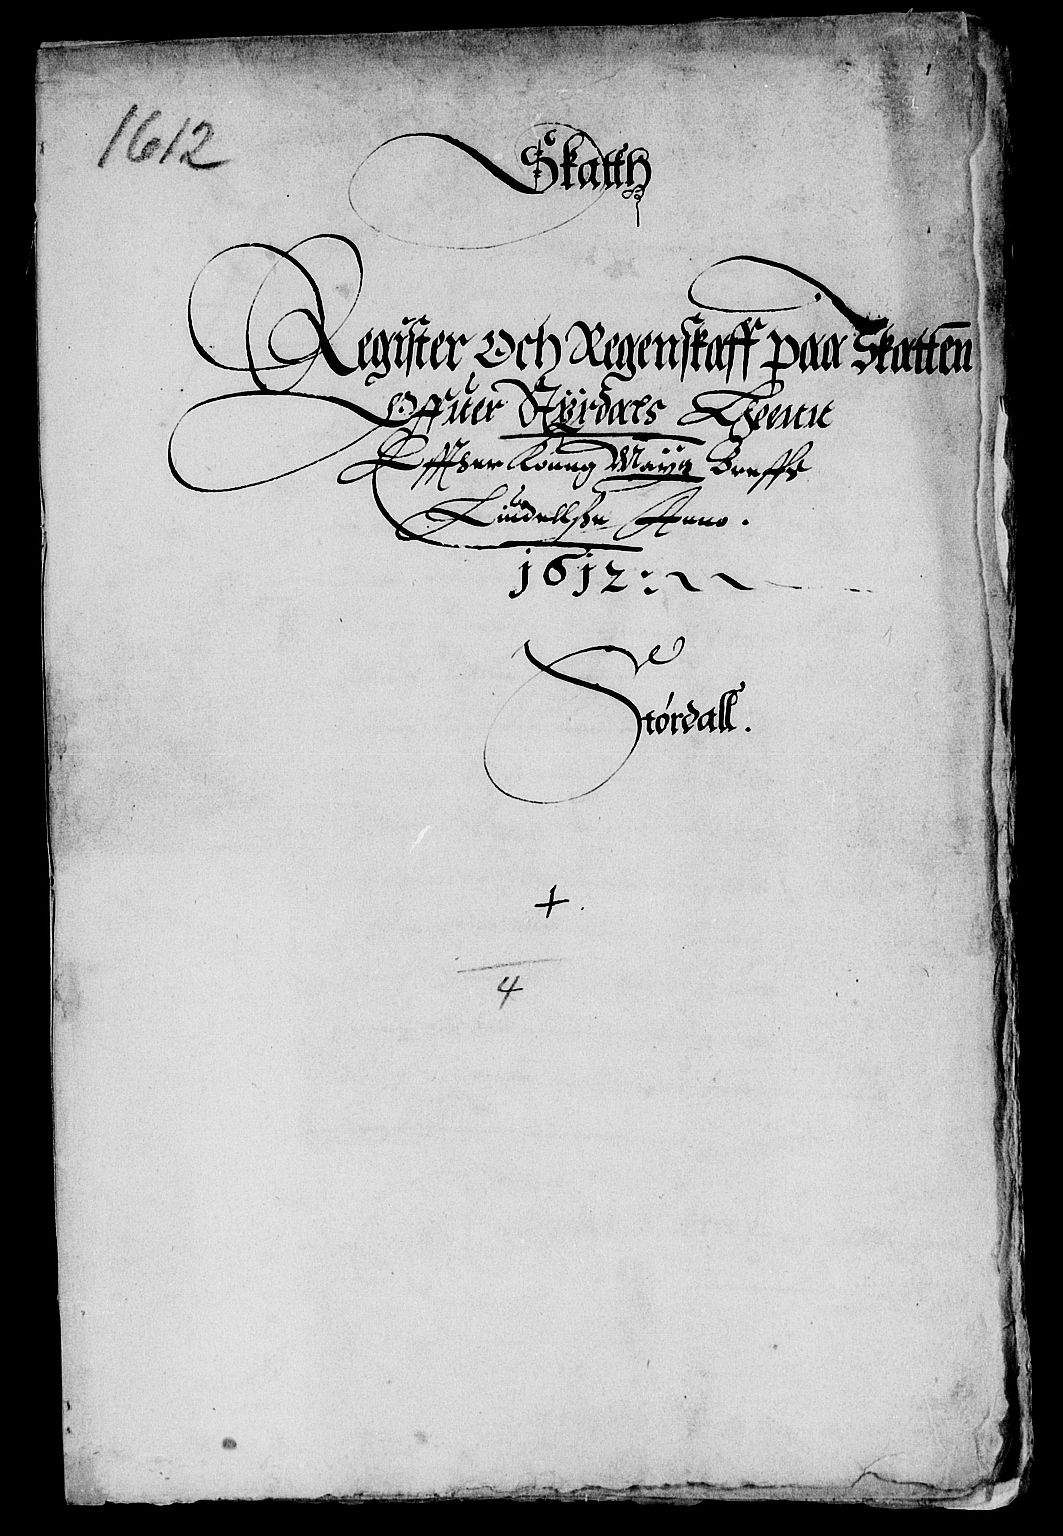 1612
Skatth
Register Och Regenskaff paa Skatten
Offuer Størdaels Leenn
Effther Konng Maytz Breffs
Liudellsse Anno.
1612:
Størdall.
+
4